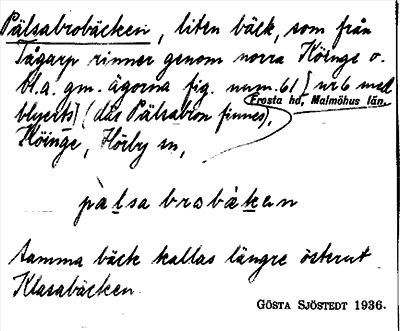 Pälsabrobäcken, liten bäck, som från
Tågarp rinner genom norra Köinge o.
bl.a. gm. ägorna fig. num. 61 [nr 6 med
blyerts] (där Pälsabron finnes),
Frosta hd, Malmöhus län.
Köinge, Hörby sn,
pàlsa brobäkan
Samma bäck kallas längre österut
Klasabäcken.
GÖSTA SJÖSTEDT 1936.